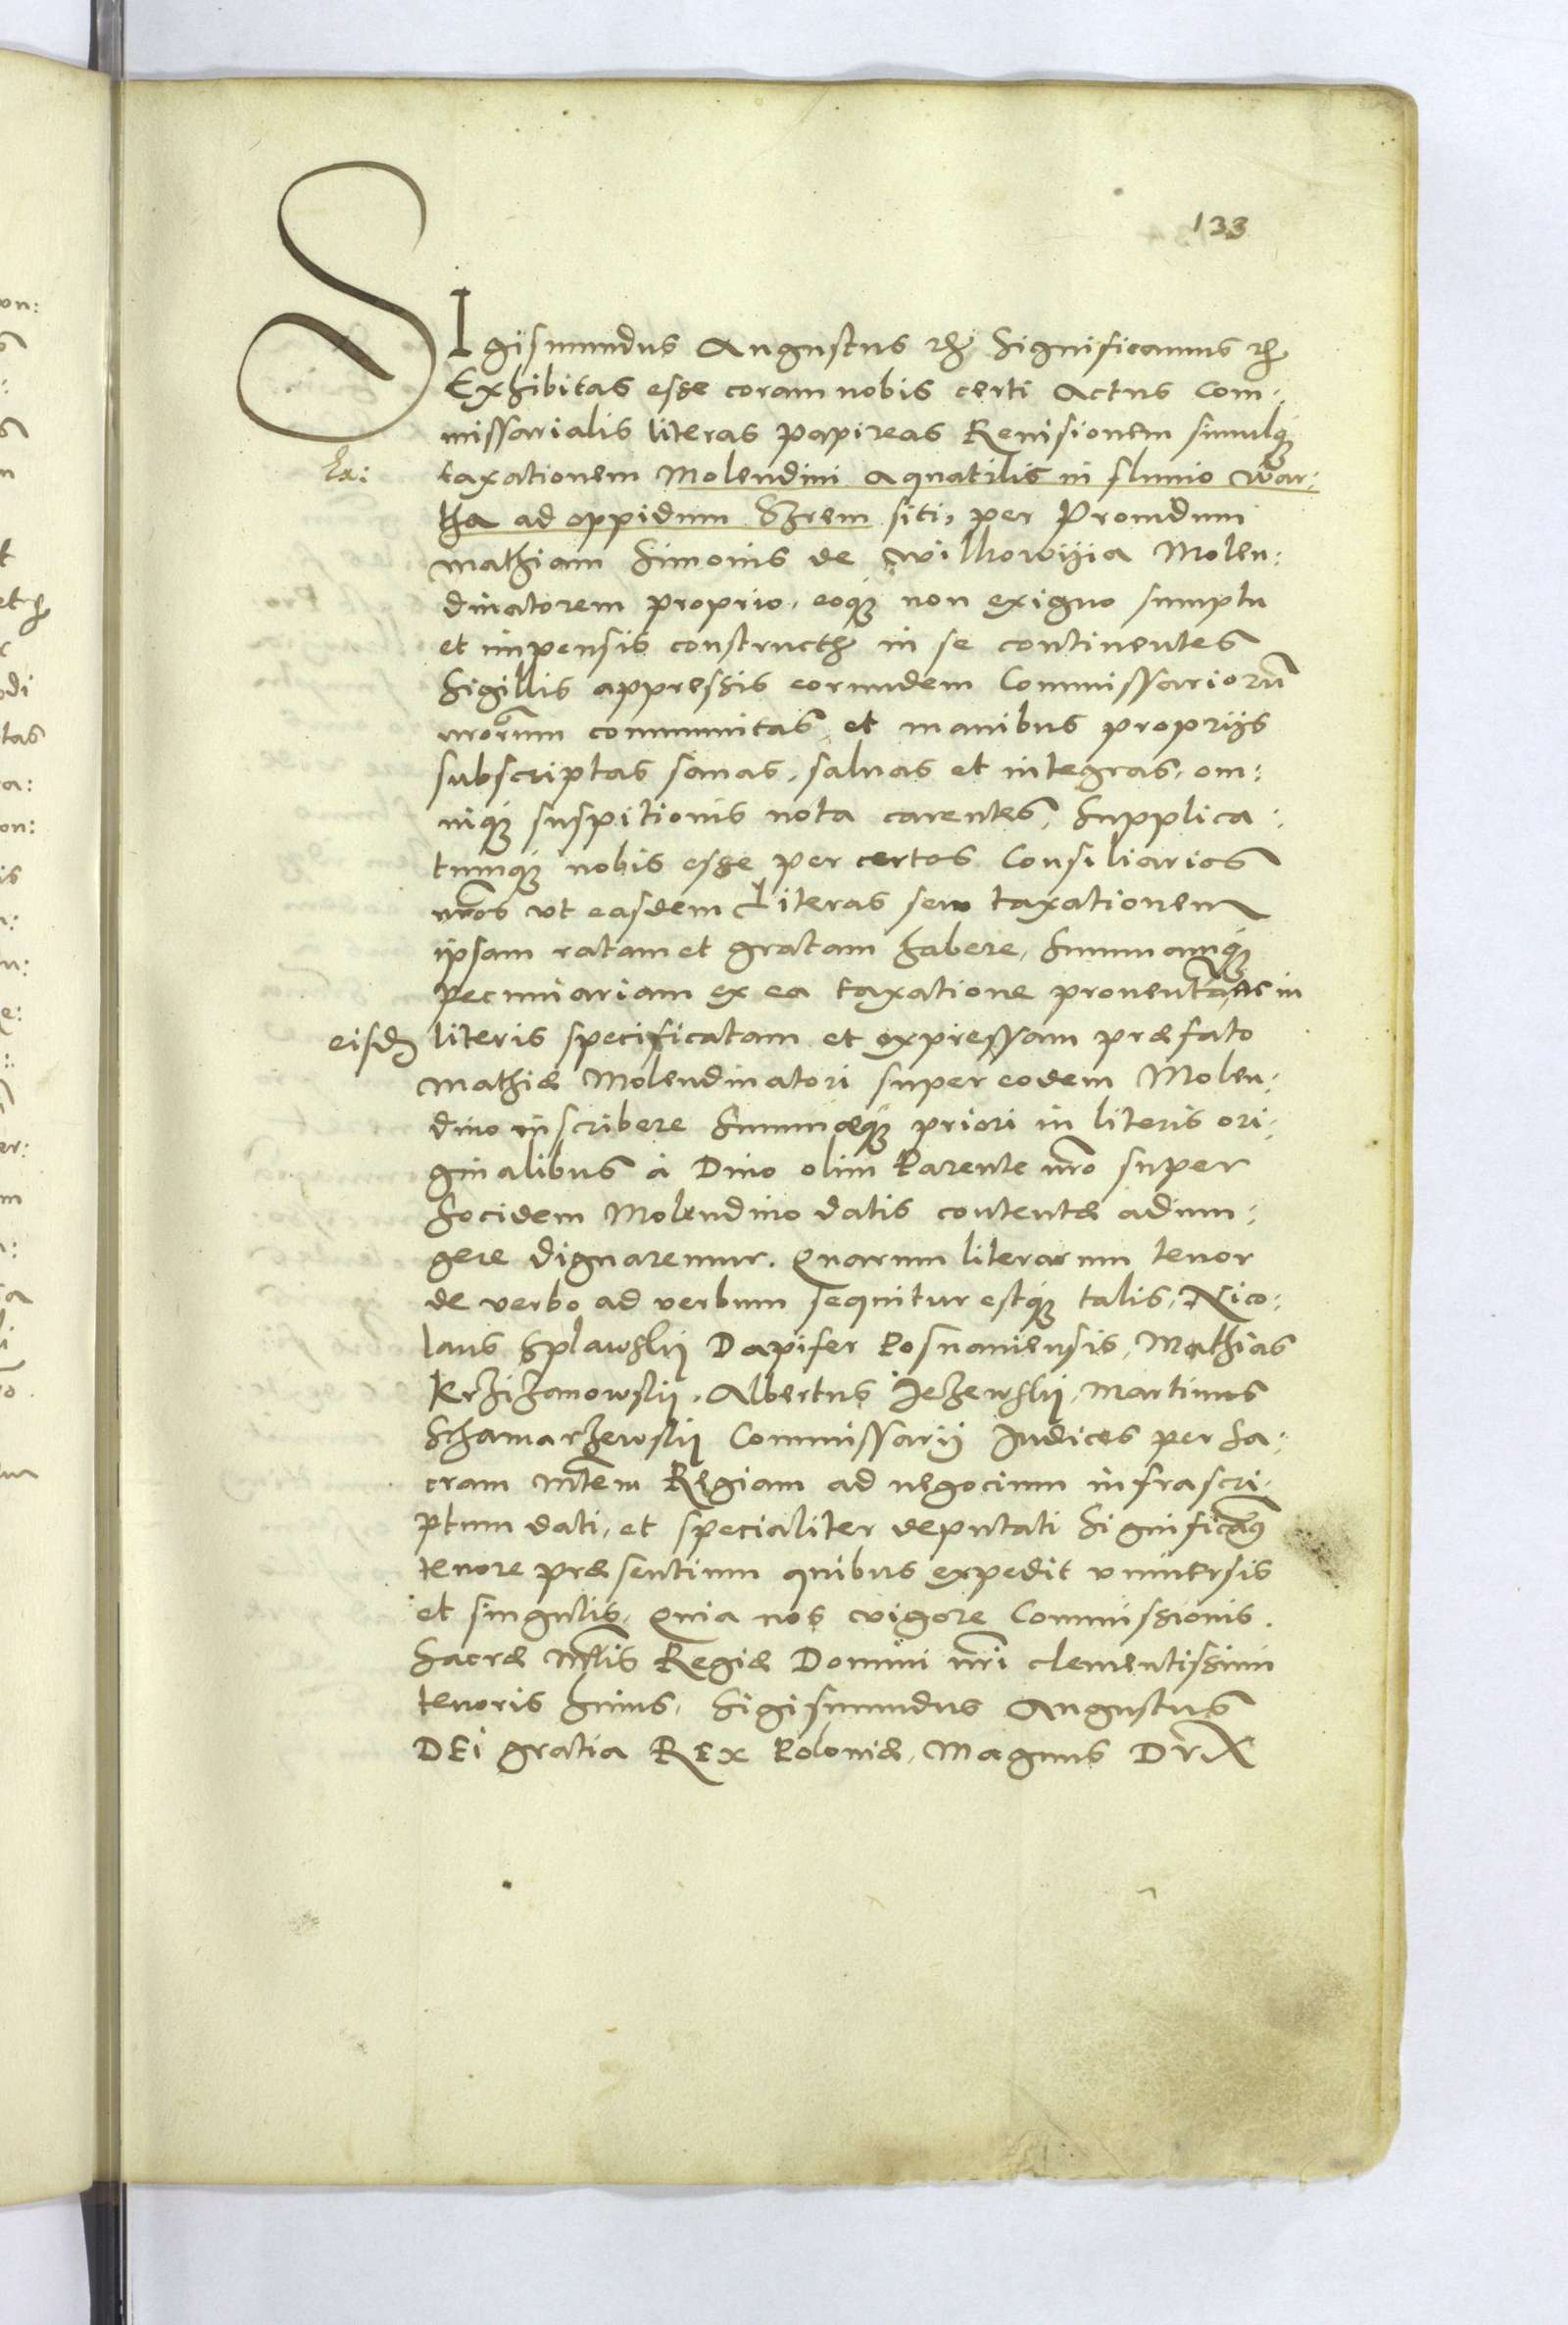 133
SIgismundus Augustus etc Significamus etc
Exhibitas esse coram nobis certi Actus Com:
missarialis literas papireas Reuisionem simulque
taxationem Molendini Aquatilis in fluuio War:
tha ad oppidum Szrem siti, per Prouidum
Mathiam Simonis de Wilkowyia Molen:
dinatorem proprio, eoque non exiguo sumptu
et impensis constructi in se continentes
Sigillis appressis eorundem Commissariorum
nrorum communitas, et manibus proprijs
subscriptas sanas, saluas et integras, om:
nique suspitionis nota carentes, Supplica:
tumque nobis esse per certos Consiliarios
nros vt easdem Literas seu taxationem
ipsam ratam et gratam habere, Summamque
pecuniariam ex ea taxatione prouentam ac in
eisdem literis specificatam et expressam præfato
Mathiæ Molendinatori super eodem Molen:
dino inscribere Summæque priori in literis ori:
ginalibus à Diuo olim Parente nro super
hocidem Molendino datis contentæ adiun:
gere dignaremur. Quarum literarum tenor
de verbo ad verbum sequitur estque talis, Nico:
laus Splawskij Dapifer Posnaniensis, Mathias
Krzizanowskij, Albertus Jezewskij, Martinus
Schamarzewskij Commissarij Judices per Sa:
cram Mtem Regiam ad negocium infrascri:
ptum dati, et specialiter deputati Significamus
tenore præsentium quibus expedit vniuersis
et singulis, Quia nos vigore Commissionis
Sacræ Mtis Regiæ Domini nri clementissimi
tenoris huius, Sigismundus Augustus
DEi gratia REx Poloniæ, Magnus DVX